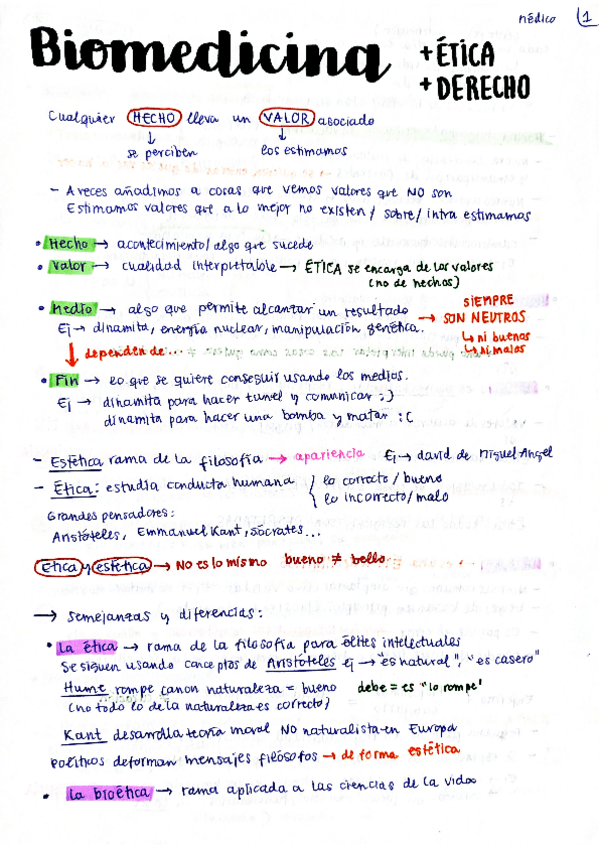 médico 1
Biomedicina + ÉTICA
+ DERECHO
Cualquier HECHO lleva un VALOR asociado
↓ ↓
se perciben los estimamos
- A veces añadimos a cosas que vemos valores que NO son
Estimamos valores que a lo mejor no existen / sobre / infra estimamos
• Hecho → acontecimiento/algo que sucede
• Valor → cualidad interpretable → ÉTICA se encarga de los valores
(no de hechos)
• Medio → algo que permite alcanzar un resultado → SIEMPRE SON NEUTROS
Ej → dinamita, energía nuclear, manipulación genética.
↳ ni buenos
↳ ni malos
↓ dependen de...
• Fin → lo que se quiere conseguir usando los medios.
Ej → dinamita para hacer tunel y comunicar :)
dinamita para hacer una bomba y matar :(
- Estética rama de la filosofía → apariencia Ej → david de Miguel Angel
- Ética: estudia conducta humana / lo correcto / bueno
\ lo incorrecto / malo
Grandes pensadores:
Aristóteles, Emmanuel Kant, Sócrates...
Etica y estética → NO es lo mismo bueno ≠ bello
→ semejanzas y diferencias:
• La ética → rama de la filosofía para élites intelectuales
Se siguen usando conceptos de Aristóteles ej → "es natural", "es casero"
Hume rompe canon naturaleza = bueno debe = es "lo rompe"
(no todo lo de la naturaleza es correcto)
Kant desarrolla teoría moral NO naturalista en Europa
políticos deforman mensajes filósofos → de forma estética
• La bioética → rama aplicada a las ciencias de la vida